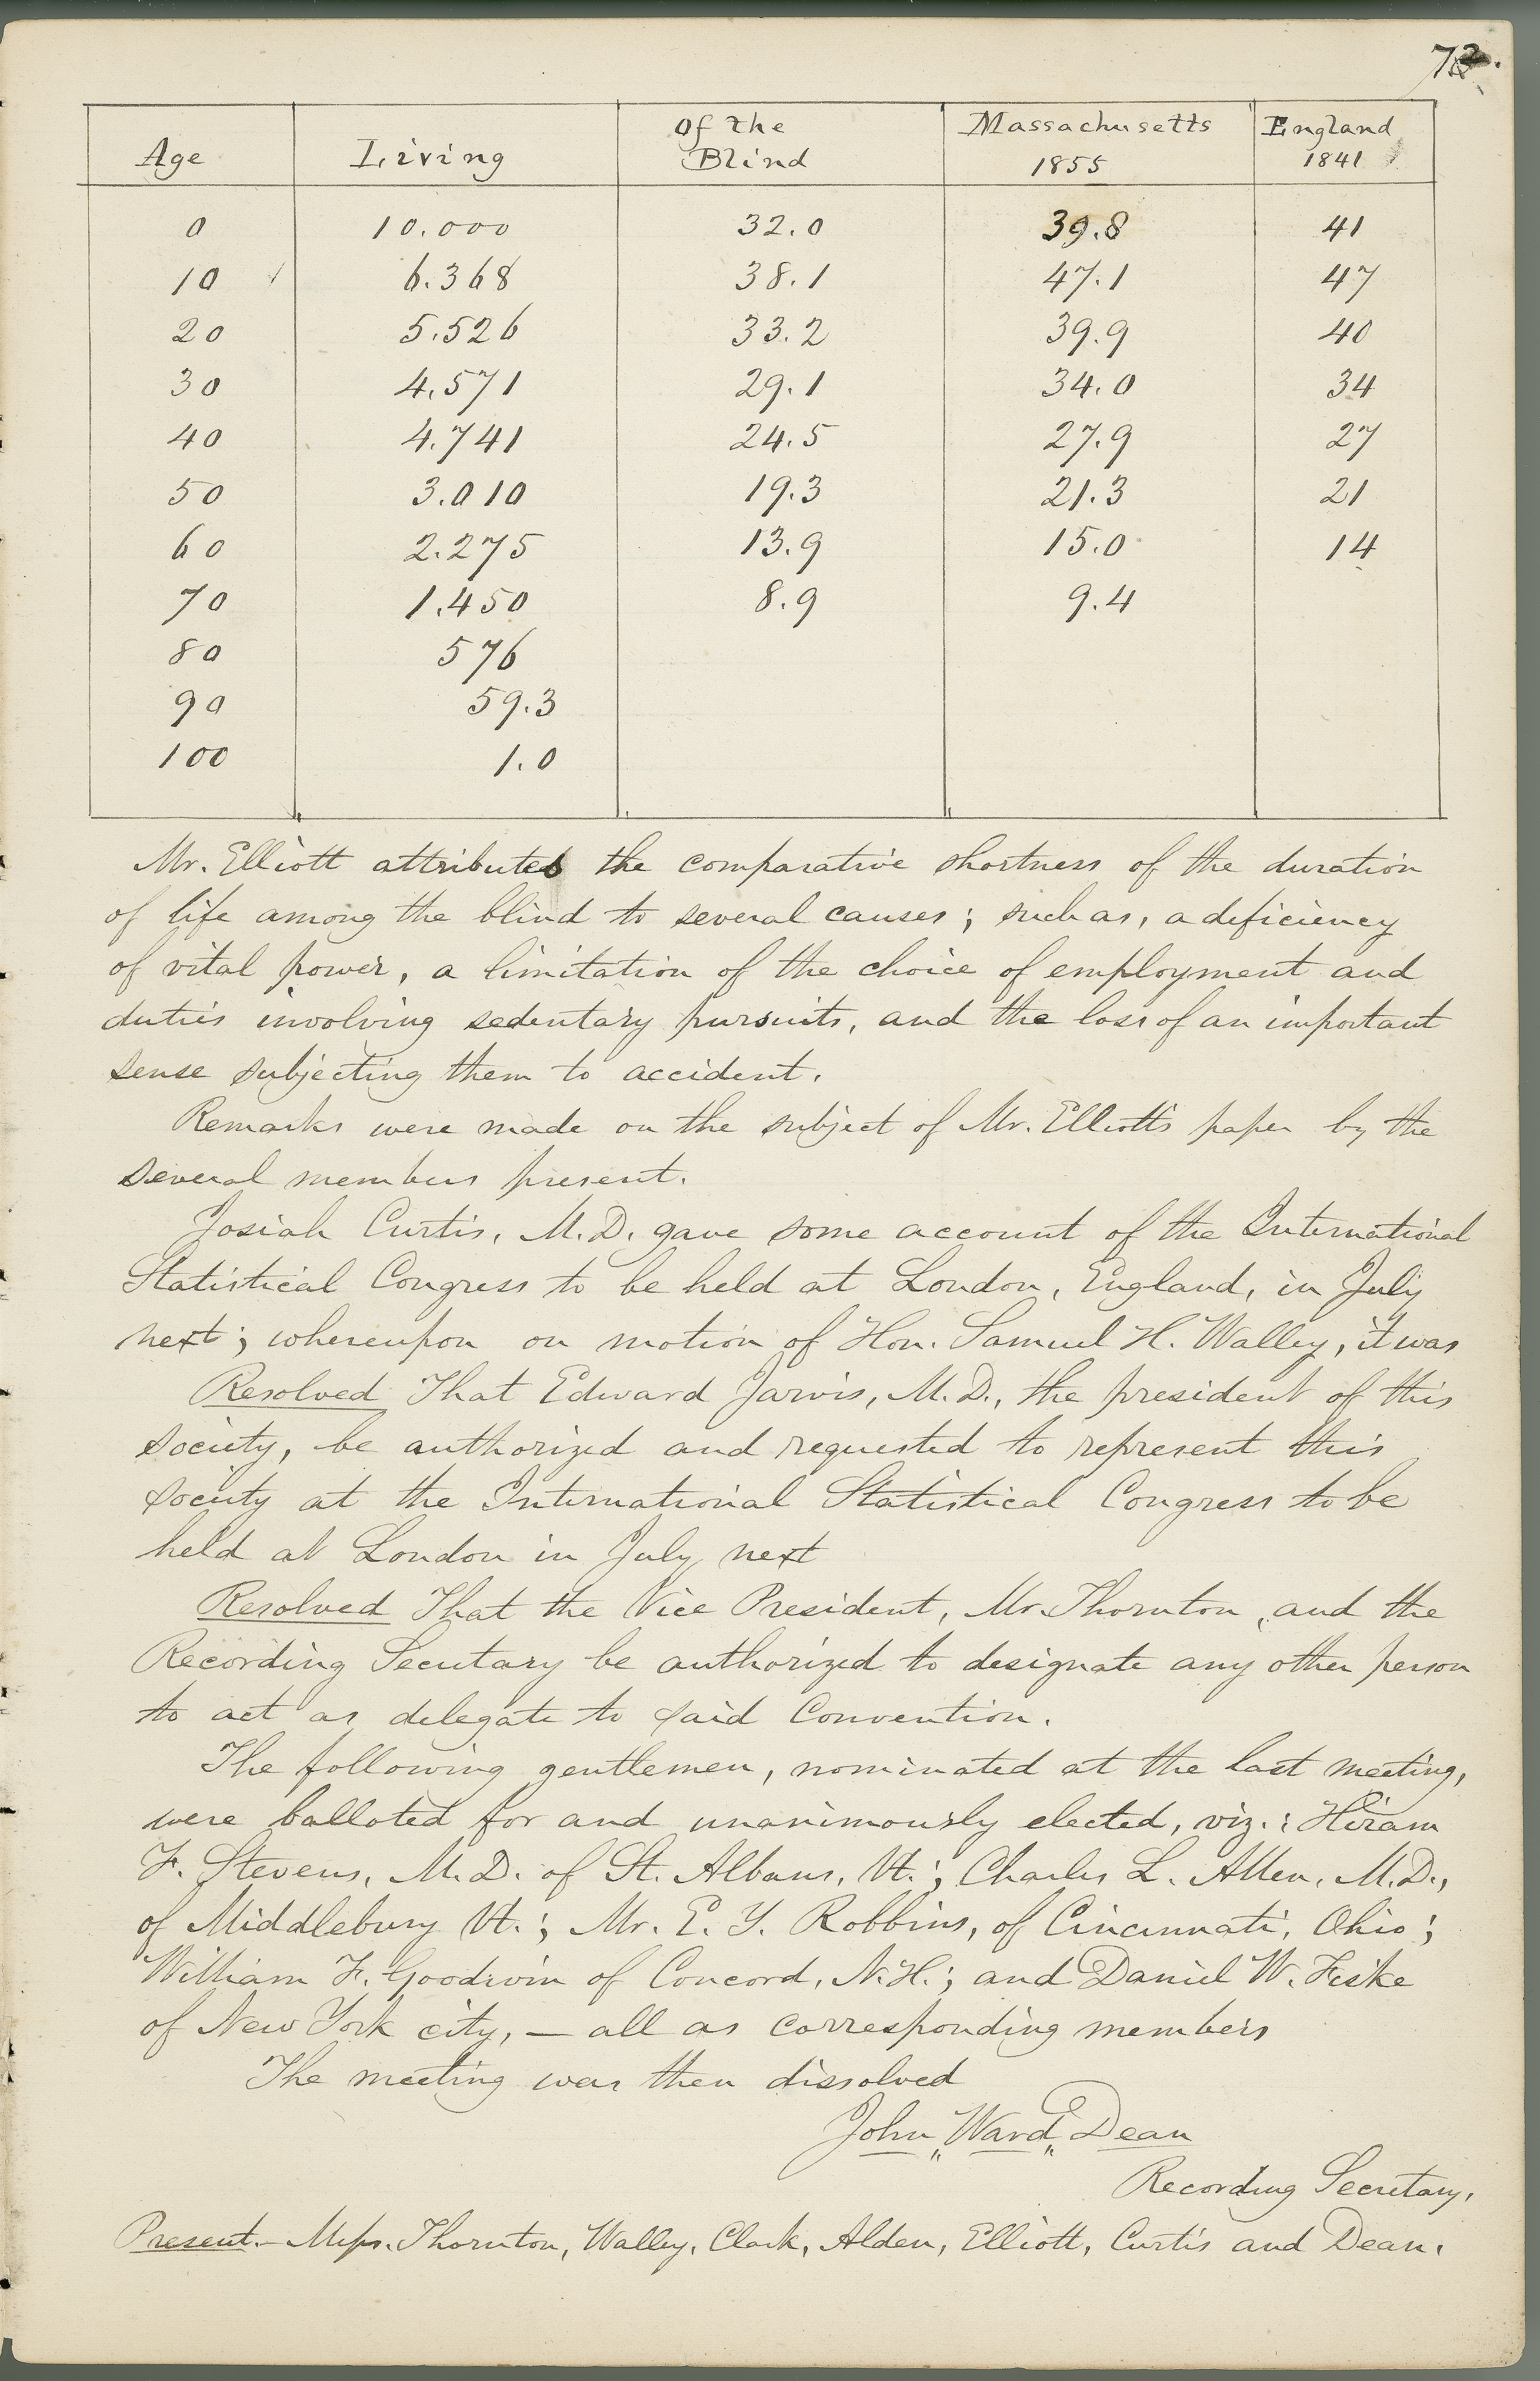 72.
Age Living Of the Blind Massachusetts 1855 England 1841
0 10.000 32.0 39.8 41
10 6.368 38.1 47.1 47
20 5.526 33.2 39.9 40
30 4.571 29.1 34.0 34
40 4.741 24.5 27.9 27
50 3.010 19.3 21.3 21
60 2.275 13.9 15.0 14
70 1.450 8.9 9.4
80 576
90 59.3
100 1.0
Mr. Elliott attributes the comparative shortness of the duration
of life among the blind to several causes; such as, a deficiency
of vital power, a limitation of the choice of employment and
duties involving sedentary pursuits, and the loss of an important
sense subjecting them to accident.
Remarks were made on the subject of Mr. Elliott's paper by the
several members present.
Josiah Curtis, M.D. gave some account of the International
Statistical Congress to be held at London, England, in July
next; whereupon on motion of Hon. Samuel H. Walley, it was
Resolved That Edward Jarvis, M.D., the president of this
society, be authorized and requested to represent this
society at the International Statistical Congress to be
held at London in July next
Resolved That the Vice President, Mr. Thornton, and the
Recording Secretary be authorized to designate any other person
to act as delegate to said Convention.
The following gentlemen, nominated at the last meeting,
were balloted for and unanimously elected, viz.: Hiram
F. Stevens, M.D. of St. Albans, Vt.; Charles L. Allen, M.D.,
of Middlebury Vt.; Mr. E. Y. Robbins, of Cincinnati, Ohio;
William F. Goodwin of Concord, N.H.; and Daniel W. Fiske
of New York city, — all as corresponding members
The meeting was then dissolved
John Ward Dean
Recording Secretary.
Present.— Messrs. Thornton, Walley, Clark, Alden, Elliott, Curtis and Dean.